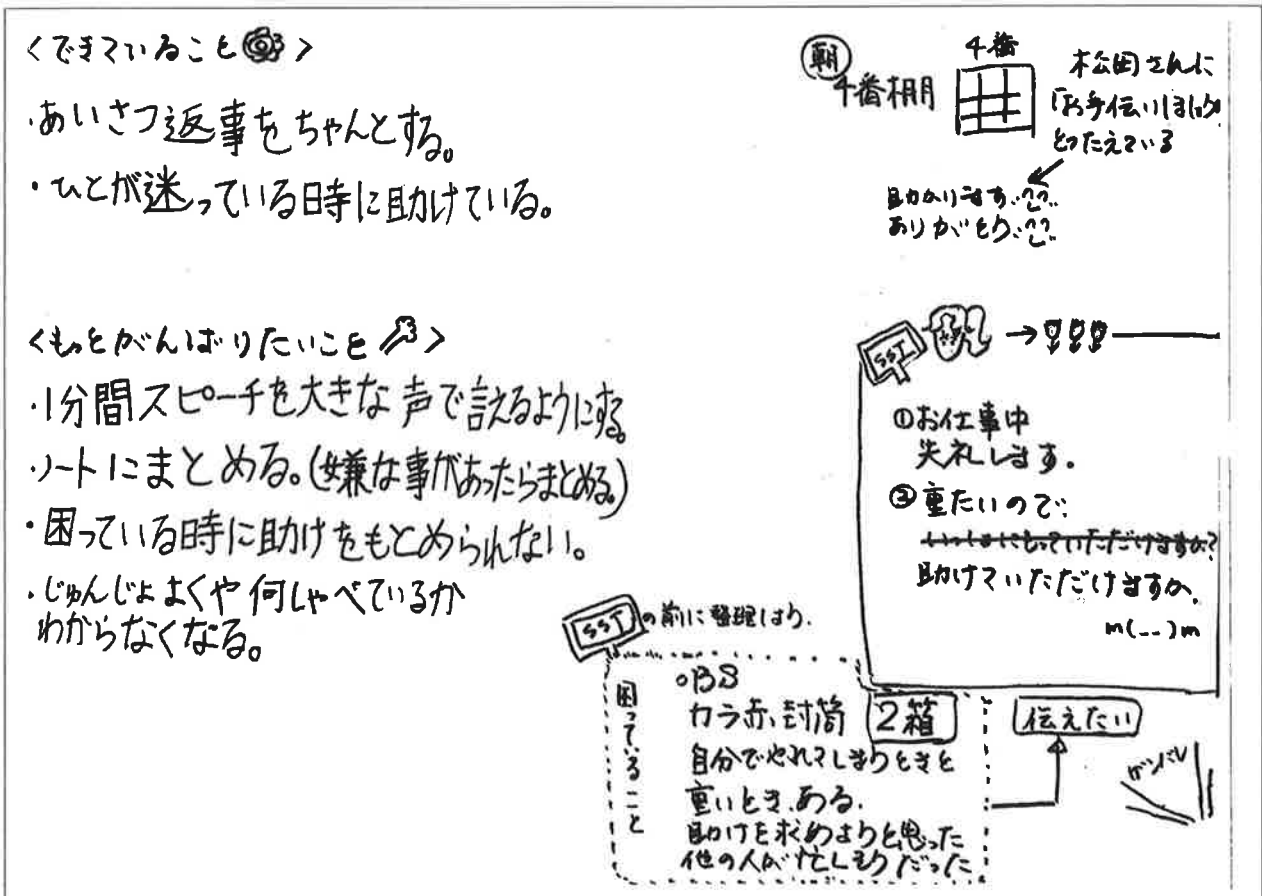 <できていること>
・あいさつ返事をちゃんとする。
・ひとが迷っている時に助けている。
<もっとがんばりたいこと>
・1分間スピーチを大きな声で言えるようにする。
・ノートにまとめる。(嫌な事があったらまとめる。)
・困っている時に助けをもとめられない。
・じゅんじょよくや何しゃべているか
わからなくなる。
朝
4番棚
4番
松田さんに
「お手伝いほしい」
とつたえている
助かります
ありがとう
SST
①お仕事中
失礼します。
②重たいので、
いっしょにもっていただけますか?
助けていただけますか。
m(_ _)m
SSTの前に整理しよう。
困っていること
カラ赤、封筒 2箱
自分でやれてしまうときと
重いとき、ある。
助けを求めようと思った
他の人が忙しそうだった
伝えたい
ガンバレ